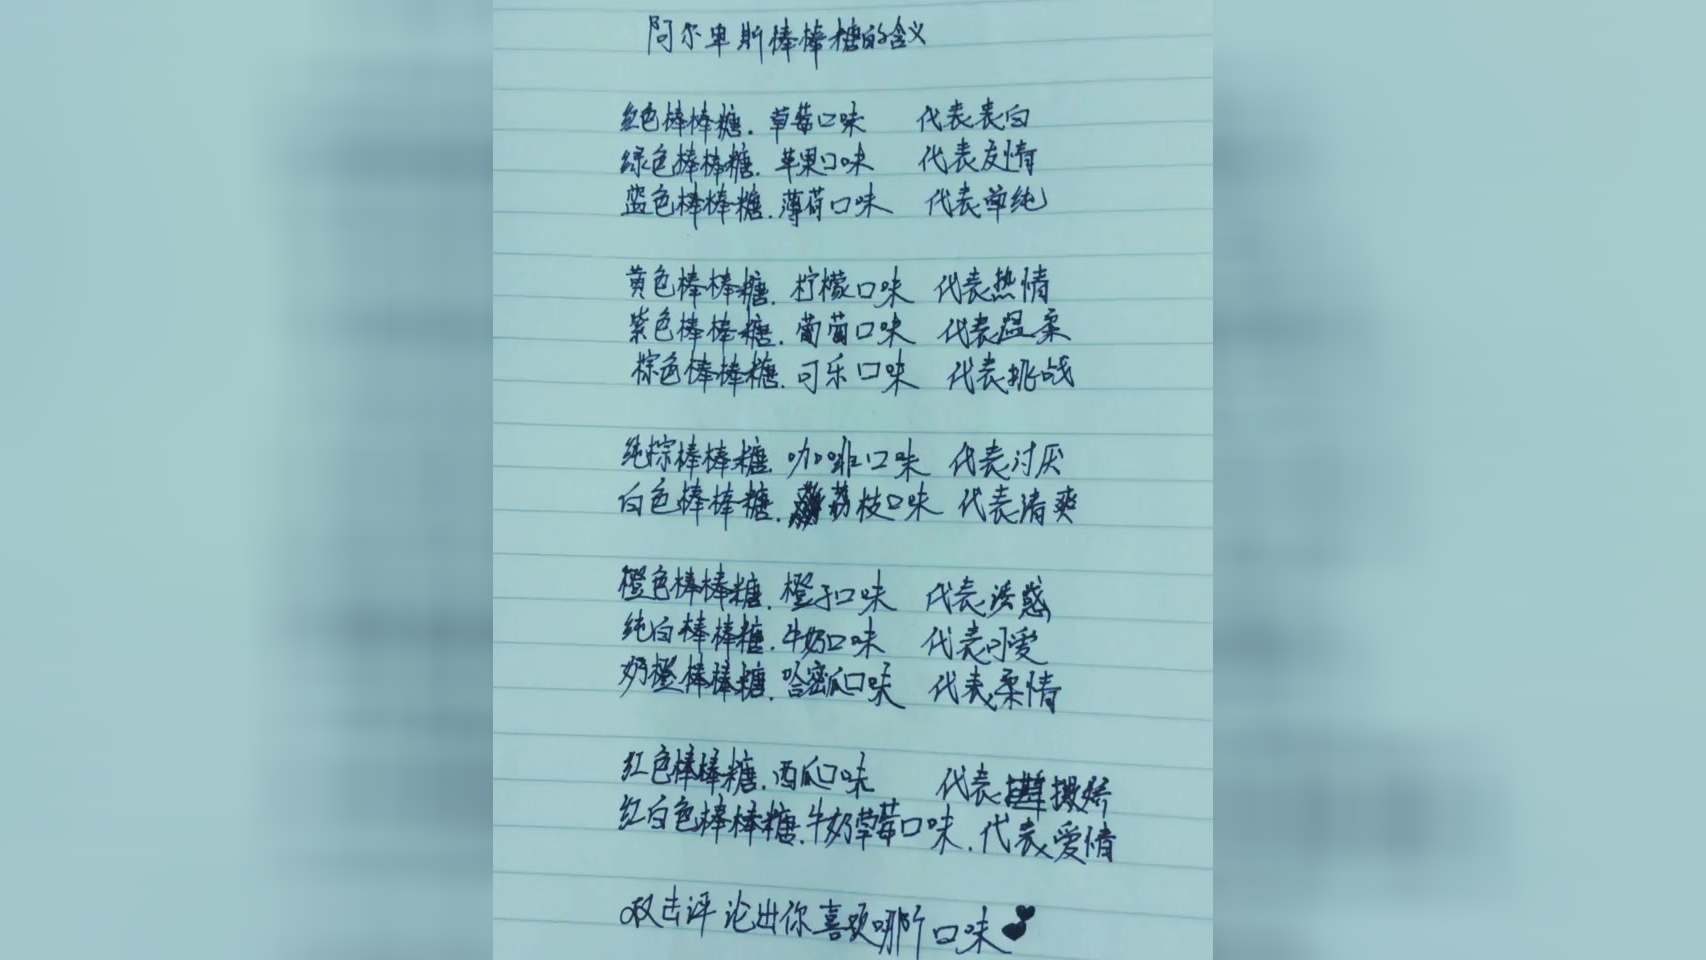 阿尔卑斯棒棒糖的含义
红色棒棒糖.草莓口味 代表表白
绿色棒棒糖.苹果口味 代表友情
蓝色棒棒糖.薄荷口味 代表单纯
黄色棒棒糖.柠檬口味 代表热情
紫色棒棒糖.葡萄口味 代表温柔
棕色棒棒糖.可乐口味 代表挑战
纯棕棒棒糖.咖啡口味 代表讨厌
白色棒棒糖.荔枝口味 代表清爽
橙色棒棒糖.橙子口味 代表诱惑
纯白棒棒糖.牛奶口味 代表可爱
奶橙棒棒糖.哈密瓜口味 代表柔情
红色棒棒糖.西瓜口味 代表撒娇
红白色棒棒糖.牛奶草莓口味.代表爱情
双击评论出你喜欢哪所口味